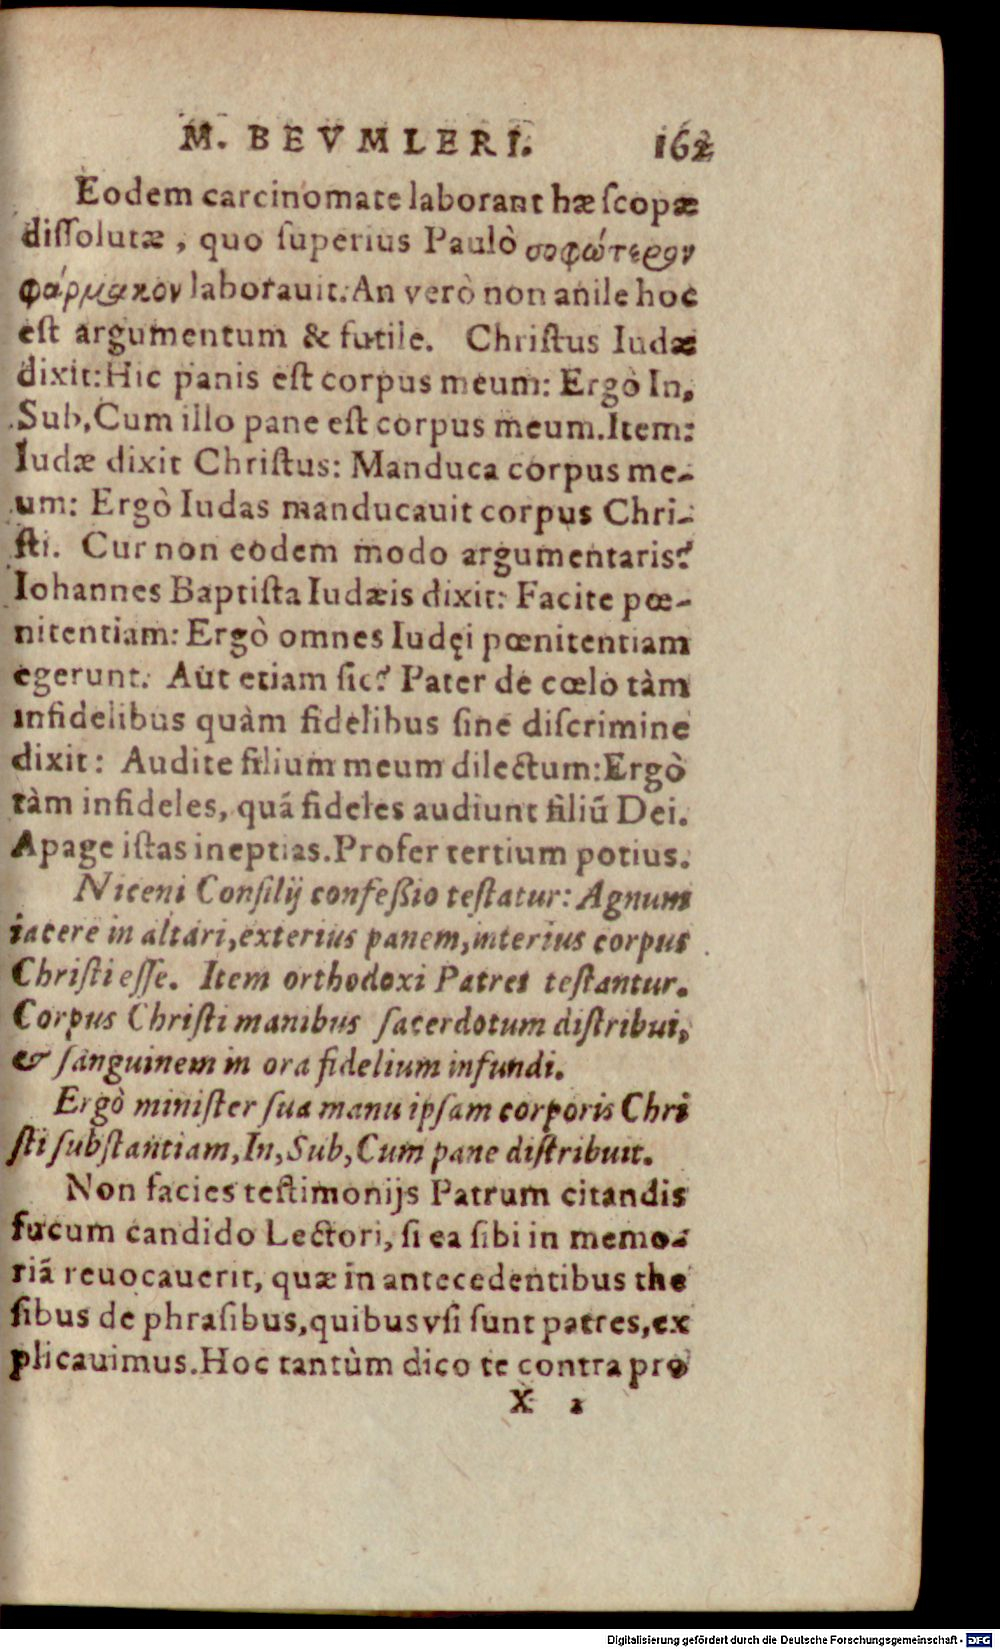 M. BEVMLERI. 162
Eodem carcinomate laborant hæ ſcopæ
diſſolutæ, quo ſuperius Paulò σοφώτερον
φάρμακον laborauit. An verò non anile hoc
eſt argumentum & futile. Chriſtus Iudæ
dixit: Hic panis eſt corpus meum: Ergò In,
Sub, Cum illo pane eſt corpus meum. Item:
Iudæ dixit Chriſtus: Manduca corpus me-
um: Ergò Iudas manducauit corpus Chri-
ſti. Cur non eodem modo argumentaris?
Iohannes Baptiſta Iudæis dixit: Facite pœ-
nitentiam: Ergò omnes Iudęi pœnitentiam
egerunt. Aut etiam ſic? Pater de cœlo tàm
infidelibus quàm fidelibus ſine diſcrimine
dixit: Audite filium meum dilectum: Ergò
tàm infideles, quã fideles audiunt filiũ Dei.
Apage iſtas ineptias. Profer tertium potius.
Niceni Conſilij confeßio teſtatur: Agnum
iacere in altari, exterius panem, interius corpus
Chriſti eſſe. Item orthodoxi Patres teſtantur.
Corpus Chriſti manibus ſacerdotum diſtribui,
& ſanguinem in ora fidelium infundi.
Ergò miniſter ſua manu ipſam corporis Chri
ſti ſubſtantiam, In, Sub, Cum pane diſtribuit.
Non facies teſtimonijs Patrum citandis
fucum candido Lectori, ſi ea ſibi in memo-
riã reuocauerit, quæ in antecedentibus the
ſibus de phraſibus, quibus vſi ſunt patres, ex
plicauimus. Hoc tantùm dico te contra pro
X 2
Digitalisierung gefördert durch die Deutsche Forschungsgemeinschaft - DFG